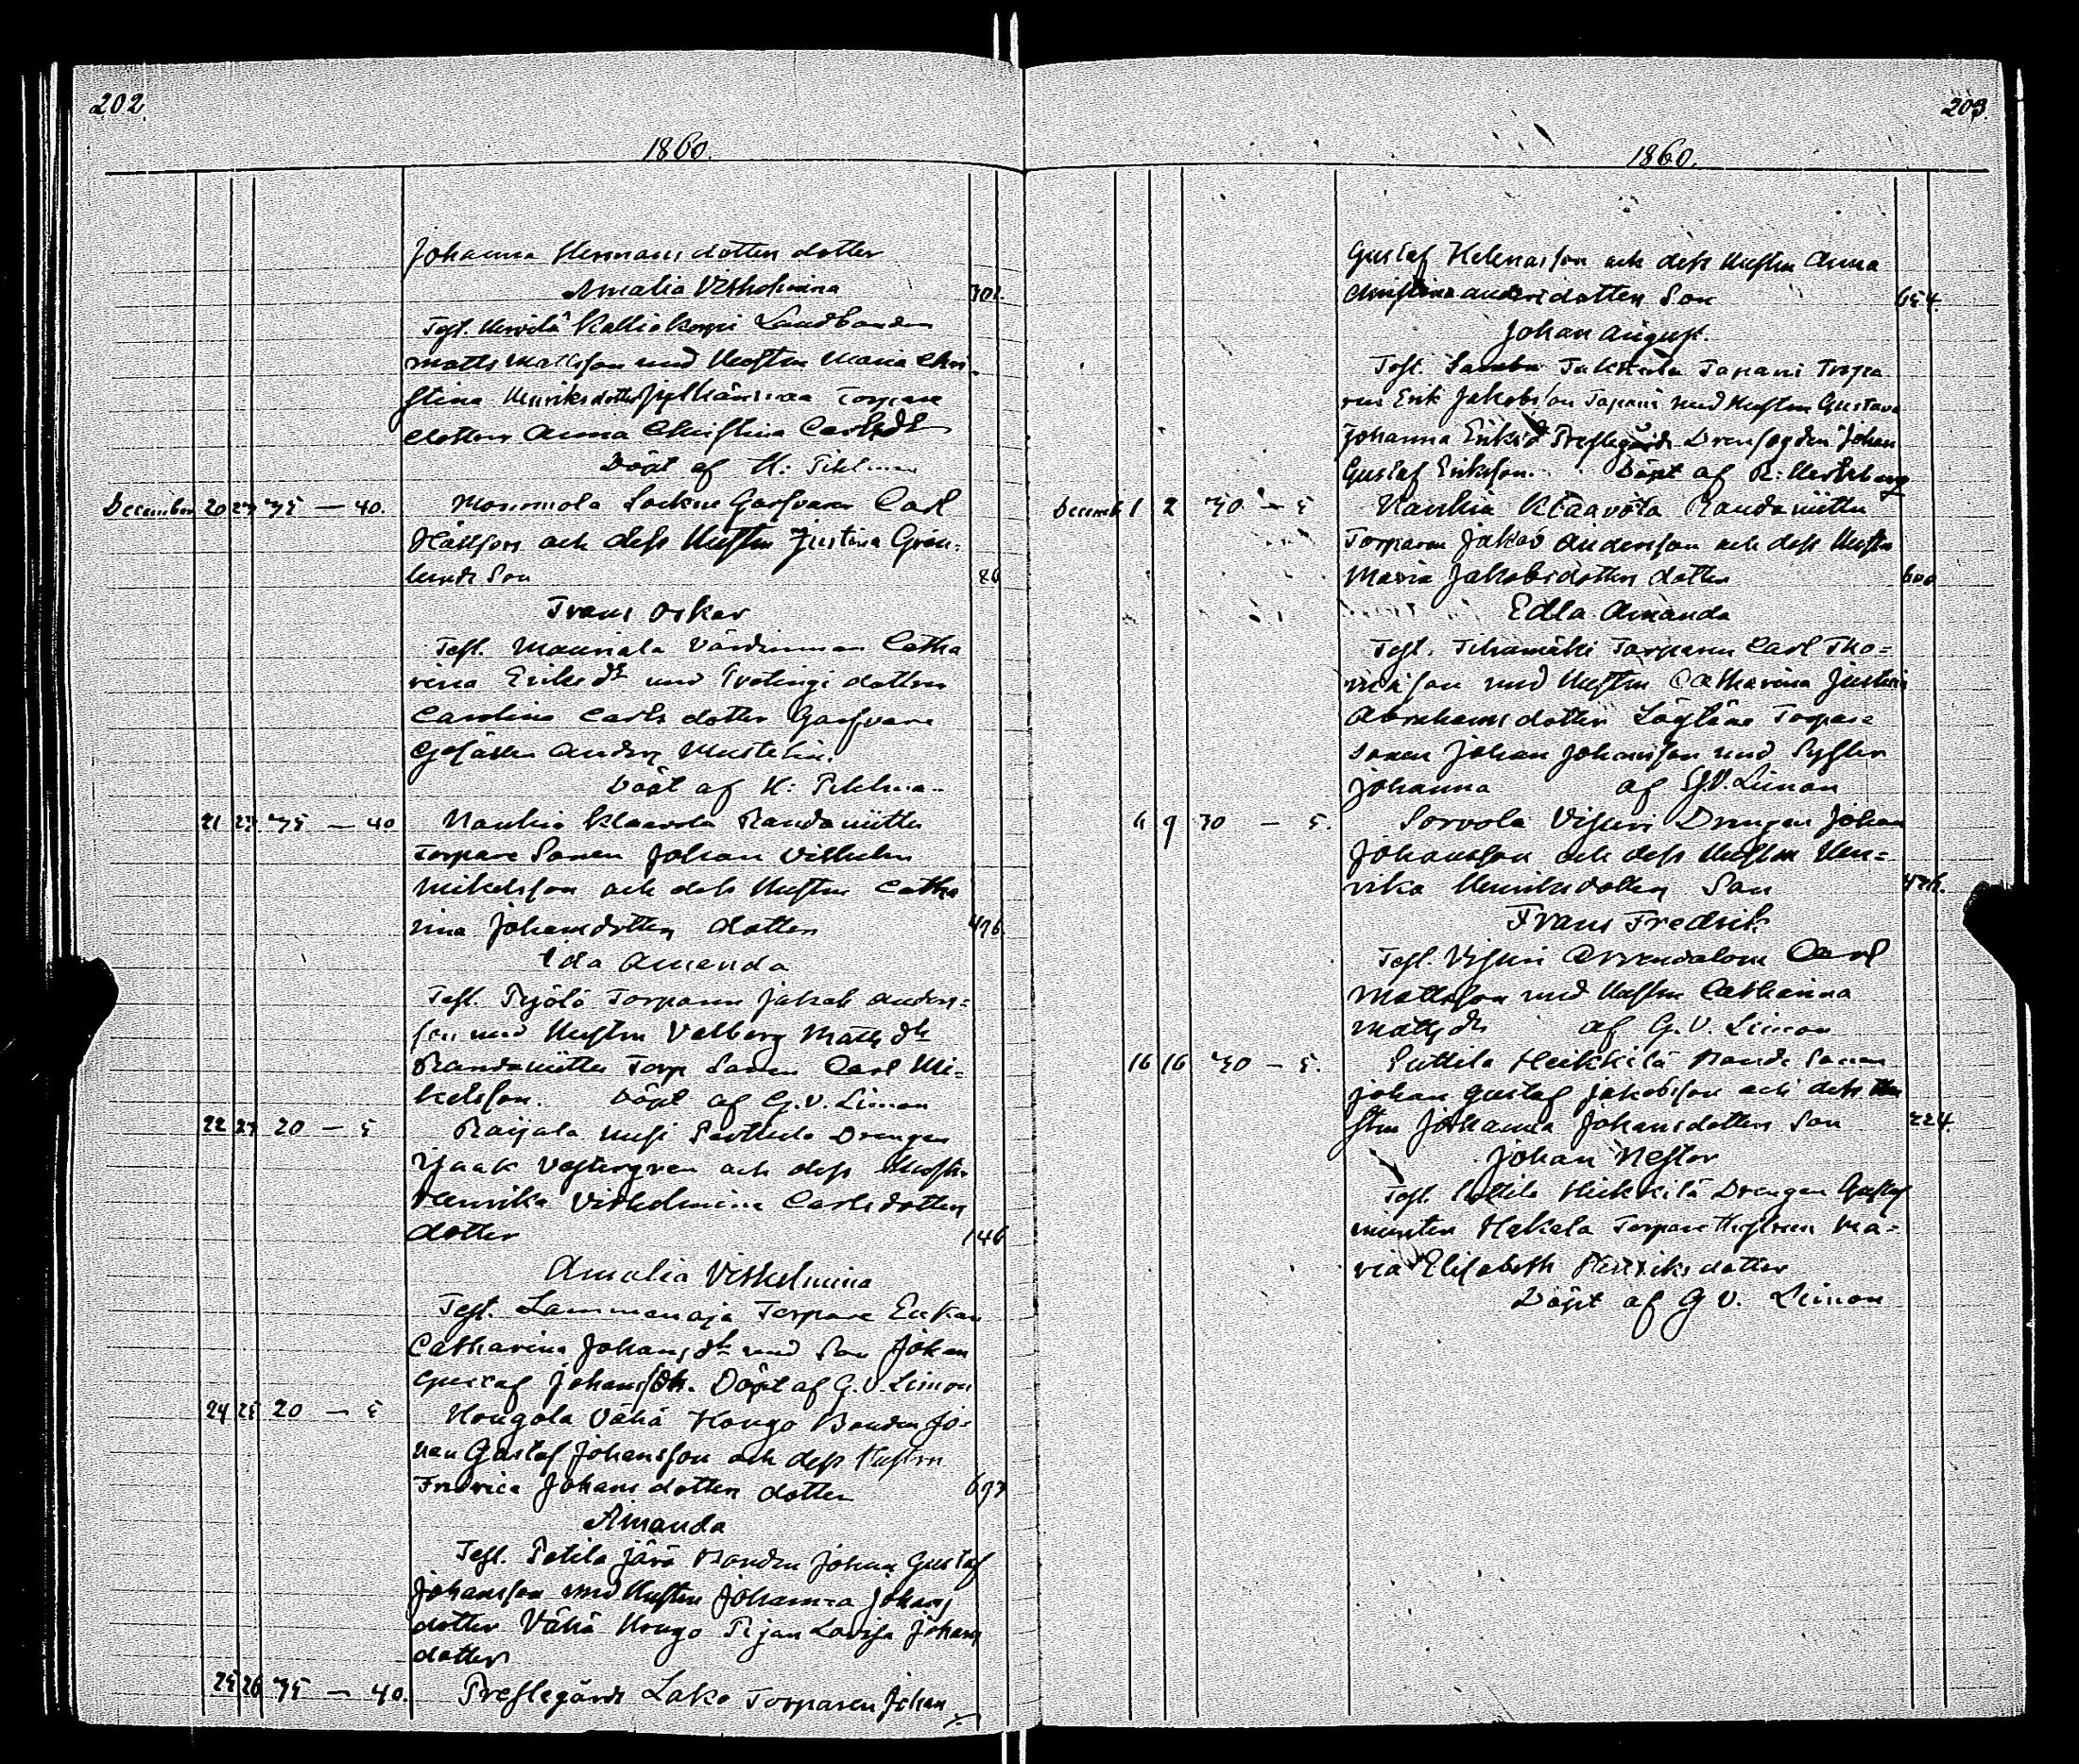 202.
1860.
Johanna Hermansdotters dotter
Amalia Vilhelmina 301.
Test. Kalliokorpi Landbonden
Matts Mattsson med Hustru Maria Chri-
stina Henriksdotter Torpare
dottern Anna Christina Carlsdr
Döpt af H: Pihlman
December 20 27 75 — 40. Mommola Sockne Garfvaren Carl
Hällfors och dess Hustru Justina Grön-
lunds Son 86
Frans Oskar
Test. Mauriala Värdinnan Catha
rina Eriksdr med dottren
Carolina Carls dotter Garfvare
Gesällen Anders Mustelin.
Döpt af H: Pihlman
21 27 75 — 40 Naukio Klaavola Randaniittu
Torpare Sonen Johan Vilhelm
Mikelsson och dess Hustru Catha
rina Johansdotters dotter 476.
Ida Amanda
Test. Torparen Jakob Anders-
son med Hustru Valborg Matts dr
Randaniittu Torp Sonen Carl Mi-
kelsson. Döpt af G.V. Limon
22 27 20 — 5 Raijala Uusi Perttula Drengen
Isaak Vestergren och dess Hustru
Henrika Vilhelmina Carlsdotters
dotter 146
Amalia Vilhelmina
Test. Lammenoja Torpare Enkan
Catharina Johans dr med Son Johan
Gustaf Johansson. Döpt af G.V. Limon
24 25 20 — 5 Hongola Vähä Hongo Bonden Jo-
han Gustaf Johansson och dess Hustru
Fredrica Johans dotters dotter 697
Amanda
Test. Potila Bonden Johan Gustaf
Johansson med Hustru Johanna Johans
dotter Vähä Hongo Pijan Lovisa Johans
dotter
25 26 75 — 40. Prestegårds Lako Torparen Johan
203.
1860.
Gustaf Helenasson och dess Hustru Anna
Christina Andersdotters Son 654.
Johan August.
Test. Tapani Torpa
ren Erik Jakobsson Tapani med Hustru Gustava
Johanna Eriksd Prestegårds Johan
Gustaf Eriksson. Döpt af R:
Decemb 1 2 70 — 5 Naukio Klaavola Randaniittu
Torparen Jakob Andersson och dess Hustru
Maria Jakobsdotters dotter 600
Edla Amanda
Test. Torparen Carl Tho-
masson med Hustru Catharina Justina
Abrahams dotter Torpare
Sonen Johan Johansson med Syster
Johanna af G.V. Limon
6 9 70 — 5. Sorvola Visuri Drengen Johan
Johansson och dess Hustru Hen-
rika Henriksdotters Son
Frans Fredrik.
Test. Visuri Carl
Mattsson med Hustru Catharina
Matts dr af G.V. Limon
16 16 70 — 5. Suttila Heikkilä Bonde Sonen
Johan Gustaf Jakobsson och dess Hu
stru Johanna Johansdotters Son 224.
Johan Nestor
Test. Suttila Heikkilä Drengen Gustaf
Hakala Torpare Hustrun Ma-
ria Elisabeth Henriksdotter
Döpt af G V. Limon